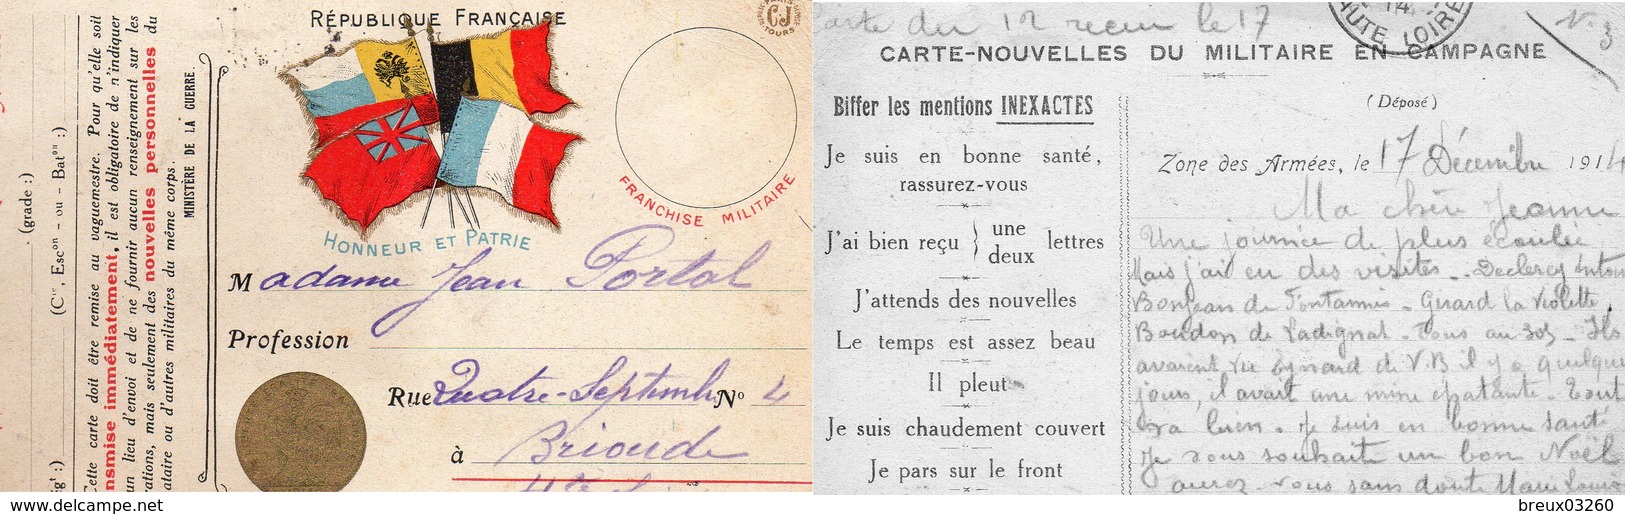 RÉPUBLIQUE FRANÇAISE
CJ
TOURS
FRANCHISE MILITAIRE
HONNEUR ET PATRIE
Madame Jean Portal
Profession
Rue Quatre-Septembre N° 4
à Brioude
Hte
(grade :)
(Cie, Escon – ou – Baton :)
Cette carte doit être remise au vaguemestre. Pour qu'elle soit
nsmise immédiatement, il est obligatoire de n'indiquer
un lieu d'envoi et de ne fournir aucun renseignement sur les
rations, mais seulement des nouvelles personnelles du
ataire ou d'autres militaires du même corps.
MINISTÈRE DE LA GUERRE.
carte du 12 reçue le 17
N° 3
14
HUTE LOIRE
CARTE-NOUVELLES DU MILITAIRE EN CAMPAGNE
Biffer les mentions INEXACTES
Je suis en bonne santé,
rassurez-vous
J'ai bien reçu } une deux lettres
J'attends des nouvelles
Le temps est assez beau
Il pleut
Je suis chaudement couvert
Je pars sur le front
(Déposé)
Zone des Armées, le 17 Décembre 1914
Ma chère Jeanne
Une journée de plus écoulée
Mais j'ai eu des visites. Declercq Antoin
Bonjean de Fontannes - Girard la Violette,
Boudon de Ladignat - Tous au 305 - Ils
avaient vu Eynard de V.B il y a quelque
jours, il avait une mine épatante. Tout
va bien. Je suis en bonne santé
Je vous souhaite un bon Noël
aurez-vous sans doute Marie Louise
delcampe.net
breux03260